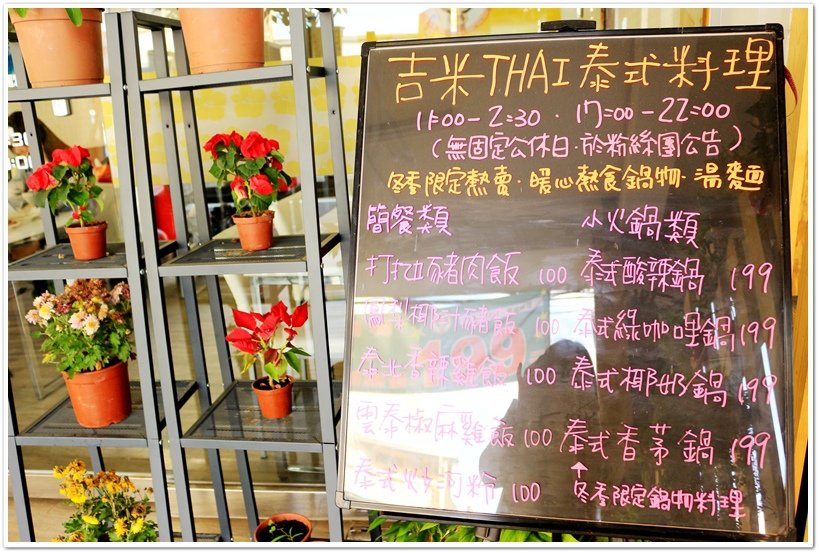 吉米THAI泰式料理
11:00-2:30・17:00-22:00
(無固定公休日・於粉絲團公告)
冬季限定熱賣:暖心熱食鍋物・湯麵
簡餐類
打拋豬肉飯 100
鳳梨椰汁豬飯 100
泰北香辣雞飯 100
雲泰椒麻雞飯 100
泰式炒河粉 100
小火鍋類
泰式酸辣鍋 199
泰式綠咖哩鍋 199
泰式椰奶鍋 199
泰式香茅鍋 199
↑
冬季限定鍋物料理